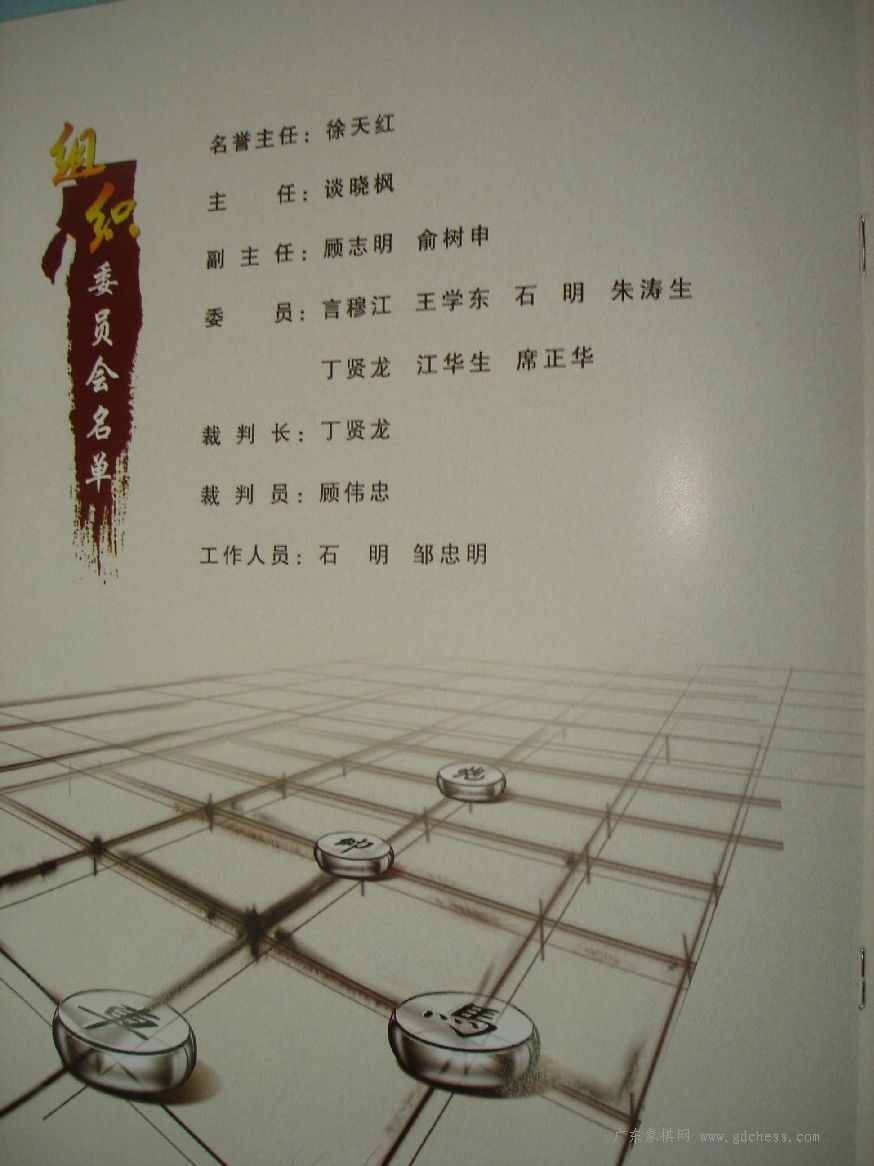 组织委员会名单
名誉主任：徐天红
主　　任：谈晓枫
副 主 任：顾志明　俞树申
委　　员：言穆江　王学东　石　明　朱涛生
丁贤龙　江华生　席正华
裁 判 长：丁贤龙
裁 判 员：顾伟忠
工作人员：石　明　邹忠明
炮
帅
車
馬
广东象棋网 www.gdchess.com